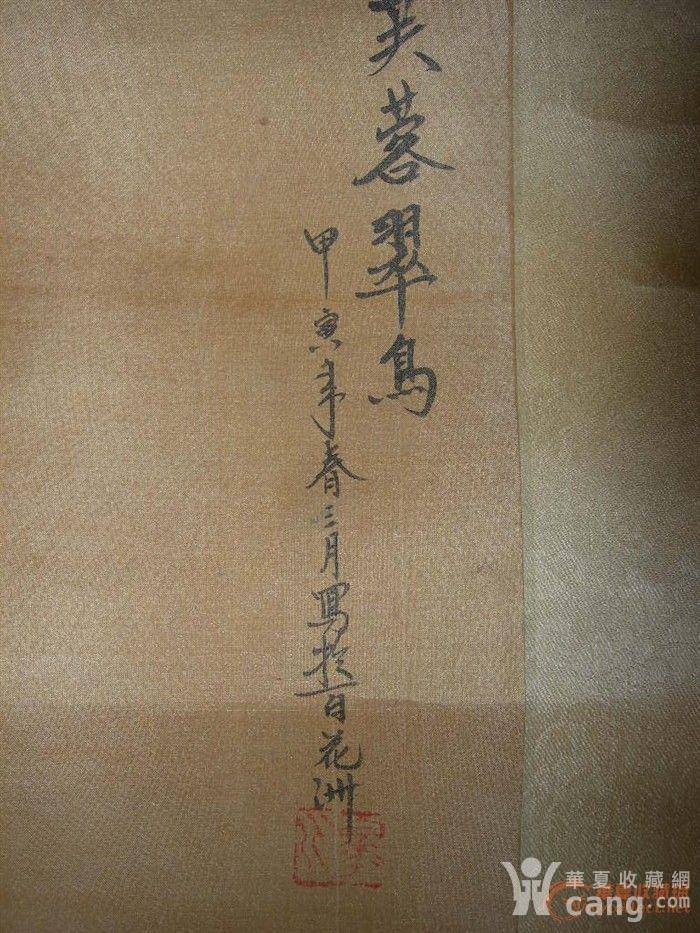 芙蓉翠鳥
甲寅年春三月寫於百花洲
華夏收藏網
cang.com